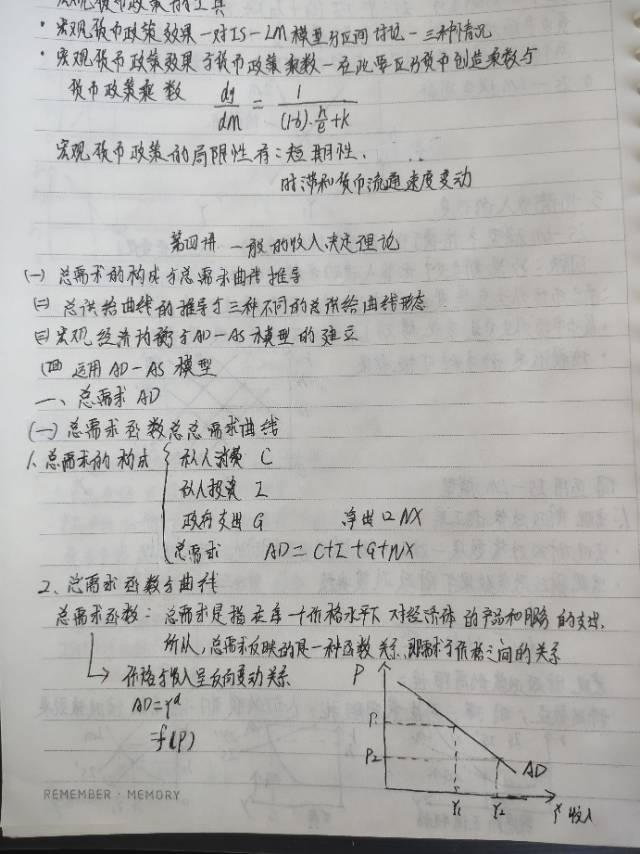 宏观货币政策的工具
· 宏观货币政策效果—对IS-LM模型分区间讨论—三种情况
· 宏观货币政策效果与货币政策乘数—在此要区分货币创造乘数与
货币政策乘数 dy/dm = 1/((1-b)·h/e+k)
宏观货币政策的局限性有:短期性、
时滞和货币流通速度变动
第四讲 一般的收入决定理论
(一) 总需求的构成与总需求曲线推导
(二) 总供给曲线的推导与三种不同的总供给曲线形态
(三) 宏观经济均衡与AD-AS模型的建立
(四) 运用AD-AS模型
一、总需求AD
(一) 总需求函数总总需求曲线
1、总需求的构成 { 私人消费 C
私人投资 I
政府支出 G 净出口NX
总需求 AD=C+I+G+NX
2、总需求函数与曲线
总需求函数:总需求是指在每一个价格水平下对经济体的产品和服务的支出,
所以,总需求反映的是一种函数关系,即需求与价格之间的关系
↳ 价格与收入呈反向变动关系
AD=Yd
=f(P)
P
P1
P2
AD
Y1 Y2 Y 收入
REMEMBER · MEMORY